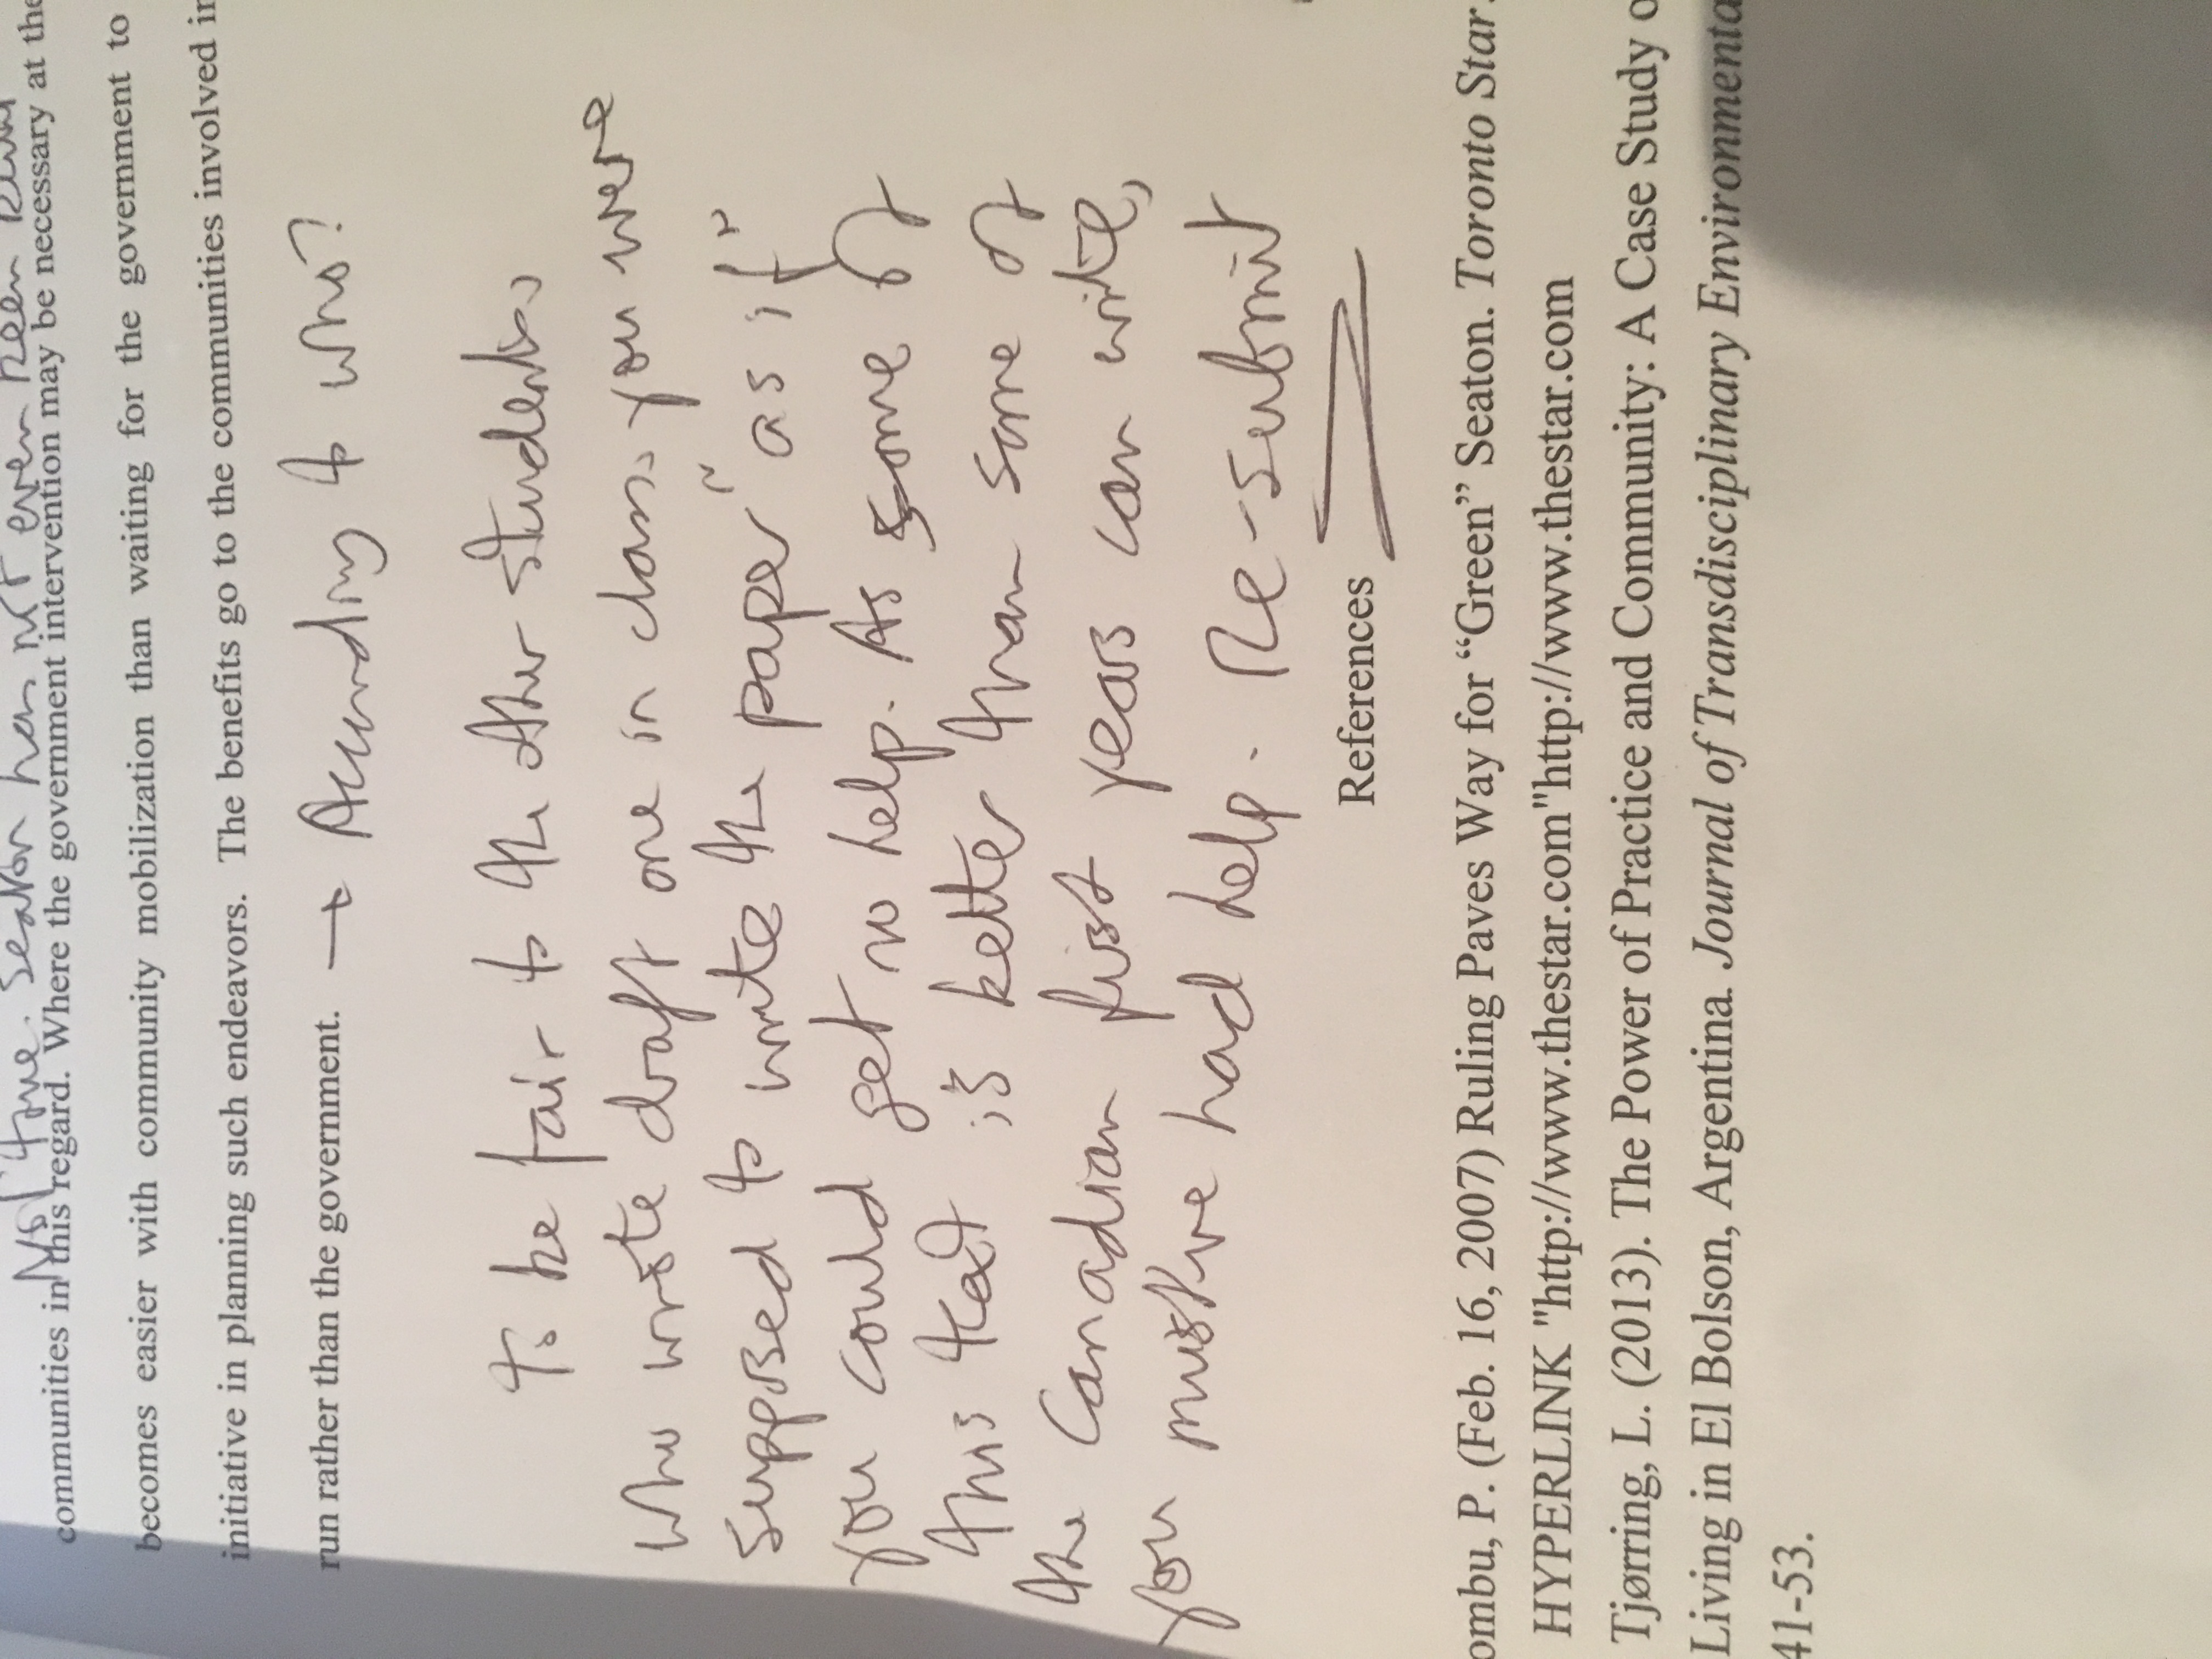 Not true. Seaton has not even been
communities in this regard. Where the government intervention may be necessary at the
becomes easier with community mobilization than waiting for the government to
initiative in planning such endeavors. The benefits go to the communities involved in
run rather than the government. → According to who?
To be fair to the other students
who wrote draft one in class, you were
supposed to write the paper "as if"
you could get no help. As some of
this text is better than some of
the Canadian first years can write,
you must've had help. Re-submit
References
ombu, P. (Feb. 16, 2007) Ruling Paves Way for “Green” Seaton. Toronto Star.
HYPERLINK "http://www.thestar.com"http://www.thestar.com
Tjørring, L. (2013). The Power of Practice and Community: A Case Study o
Living in El Bolson, Argentina. Journal of Transdisciplinary Environmenta
41-53.